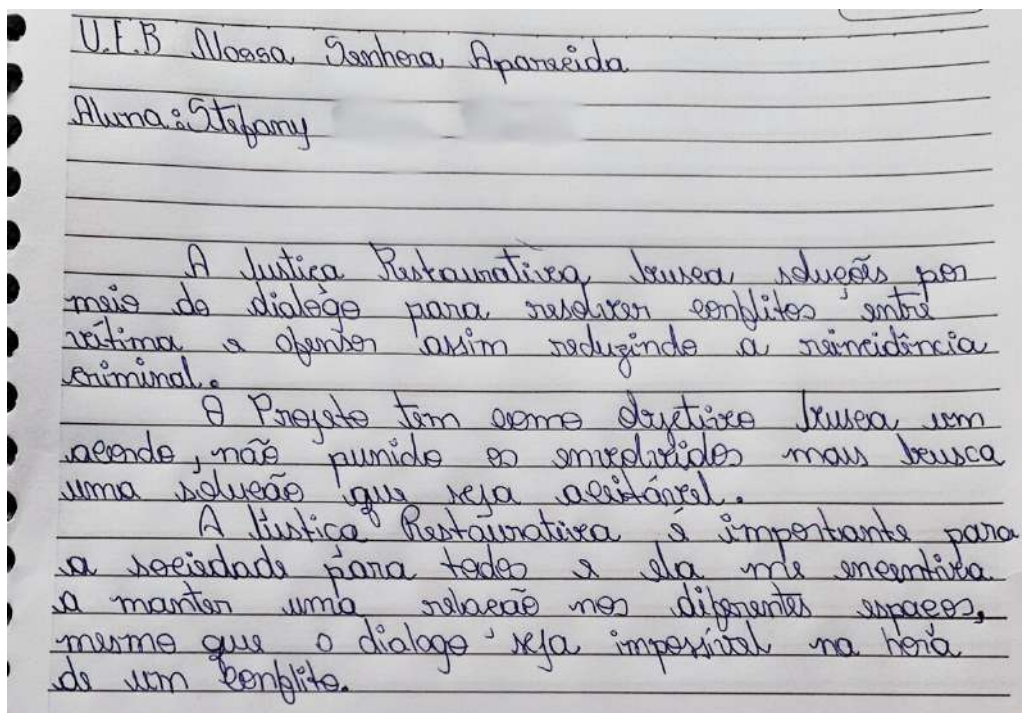 U.F.B Nossa Senhora Aparecida
Aluna: Stefany
A Justiça Restaurativa busca soluções por
meio do dialogo para resolver conflitos entre
vítima e ofensor assim reduzindo a reincidência
criminal.
O Projeto tem como objetivo busca um
acordo, não punido os envolvidos mais busca
uma solução que seja aceitável.
A Justiça Restaurativa é importante para
a sociedade para todos e ela me encentiva
a manter uma relação nos diferentes espaços,
mesmo que o dialogo seja impossível na hora
de um conflito.